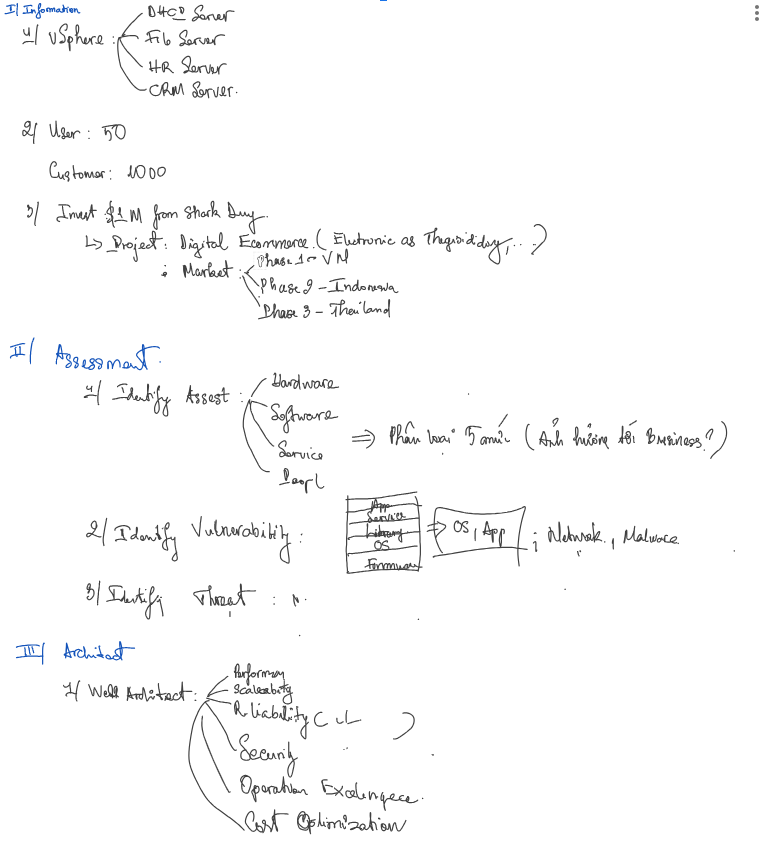 I/ Information
1/ vSphere :
DHCP Server
File Server
HR Server
CRM Server.
2/ User : 50
Customer : 1000
3/ Invest $1M from Shark Duy.
↳ Project : Digital Ecommerce. ( Electronic as Thegioididay, ... )
: Market :
Phase 1 - VN
Phase 2 - Indonesia
Phase 3 - Thailand
II/ Assessment.
1/ Identify Assest :
Hardware
Software
Service
Peopl
⇒ Phân loại 5 mức ( Ảnh hưởng tới Business? )
2/ Identify Vulnerability :
App
Service
Library
OS
Firmware
⇒ OS, App ; Network, Malware
3/ Identify Threat :
III/ Architect
1/ Well Architect :
Scaleability
Reliability (
)
Security
Operation
Cost Optimization